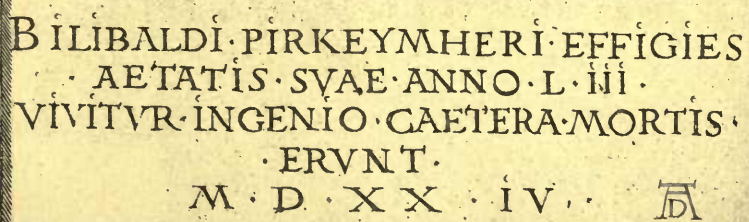 BiLiBALDi·PiRKEYMHERi·EFFiGiES
·AETATiS·SVAE·ANNO·L·iii·
ViViTVR·iNGENiO·CAETERA·MORTiS·
·ERVNT·
M·D·XX·iV·
AD